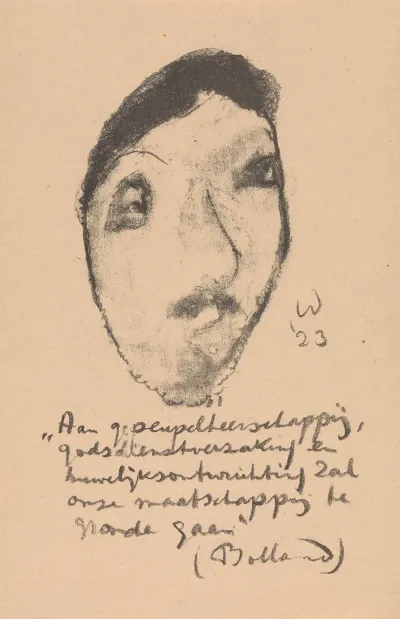 W
'23
„Aan gepeupelheerschappij,
godsdienstverzaking en
huwelijksontwrichting zal
onze maatschappij te
gronde gaan"
(Bolland)